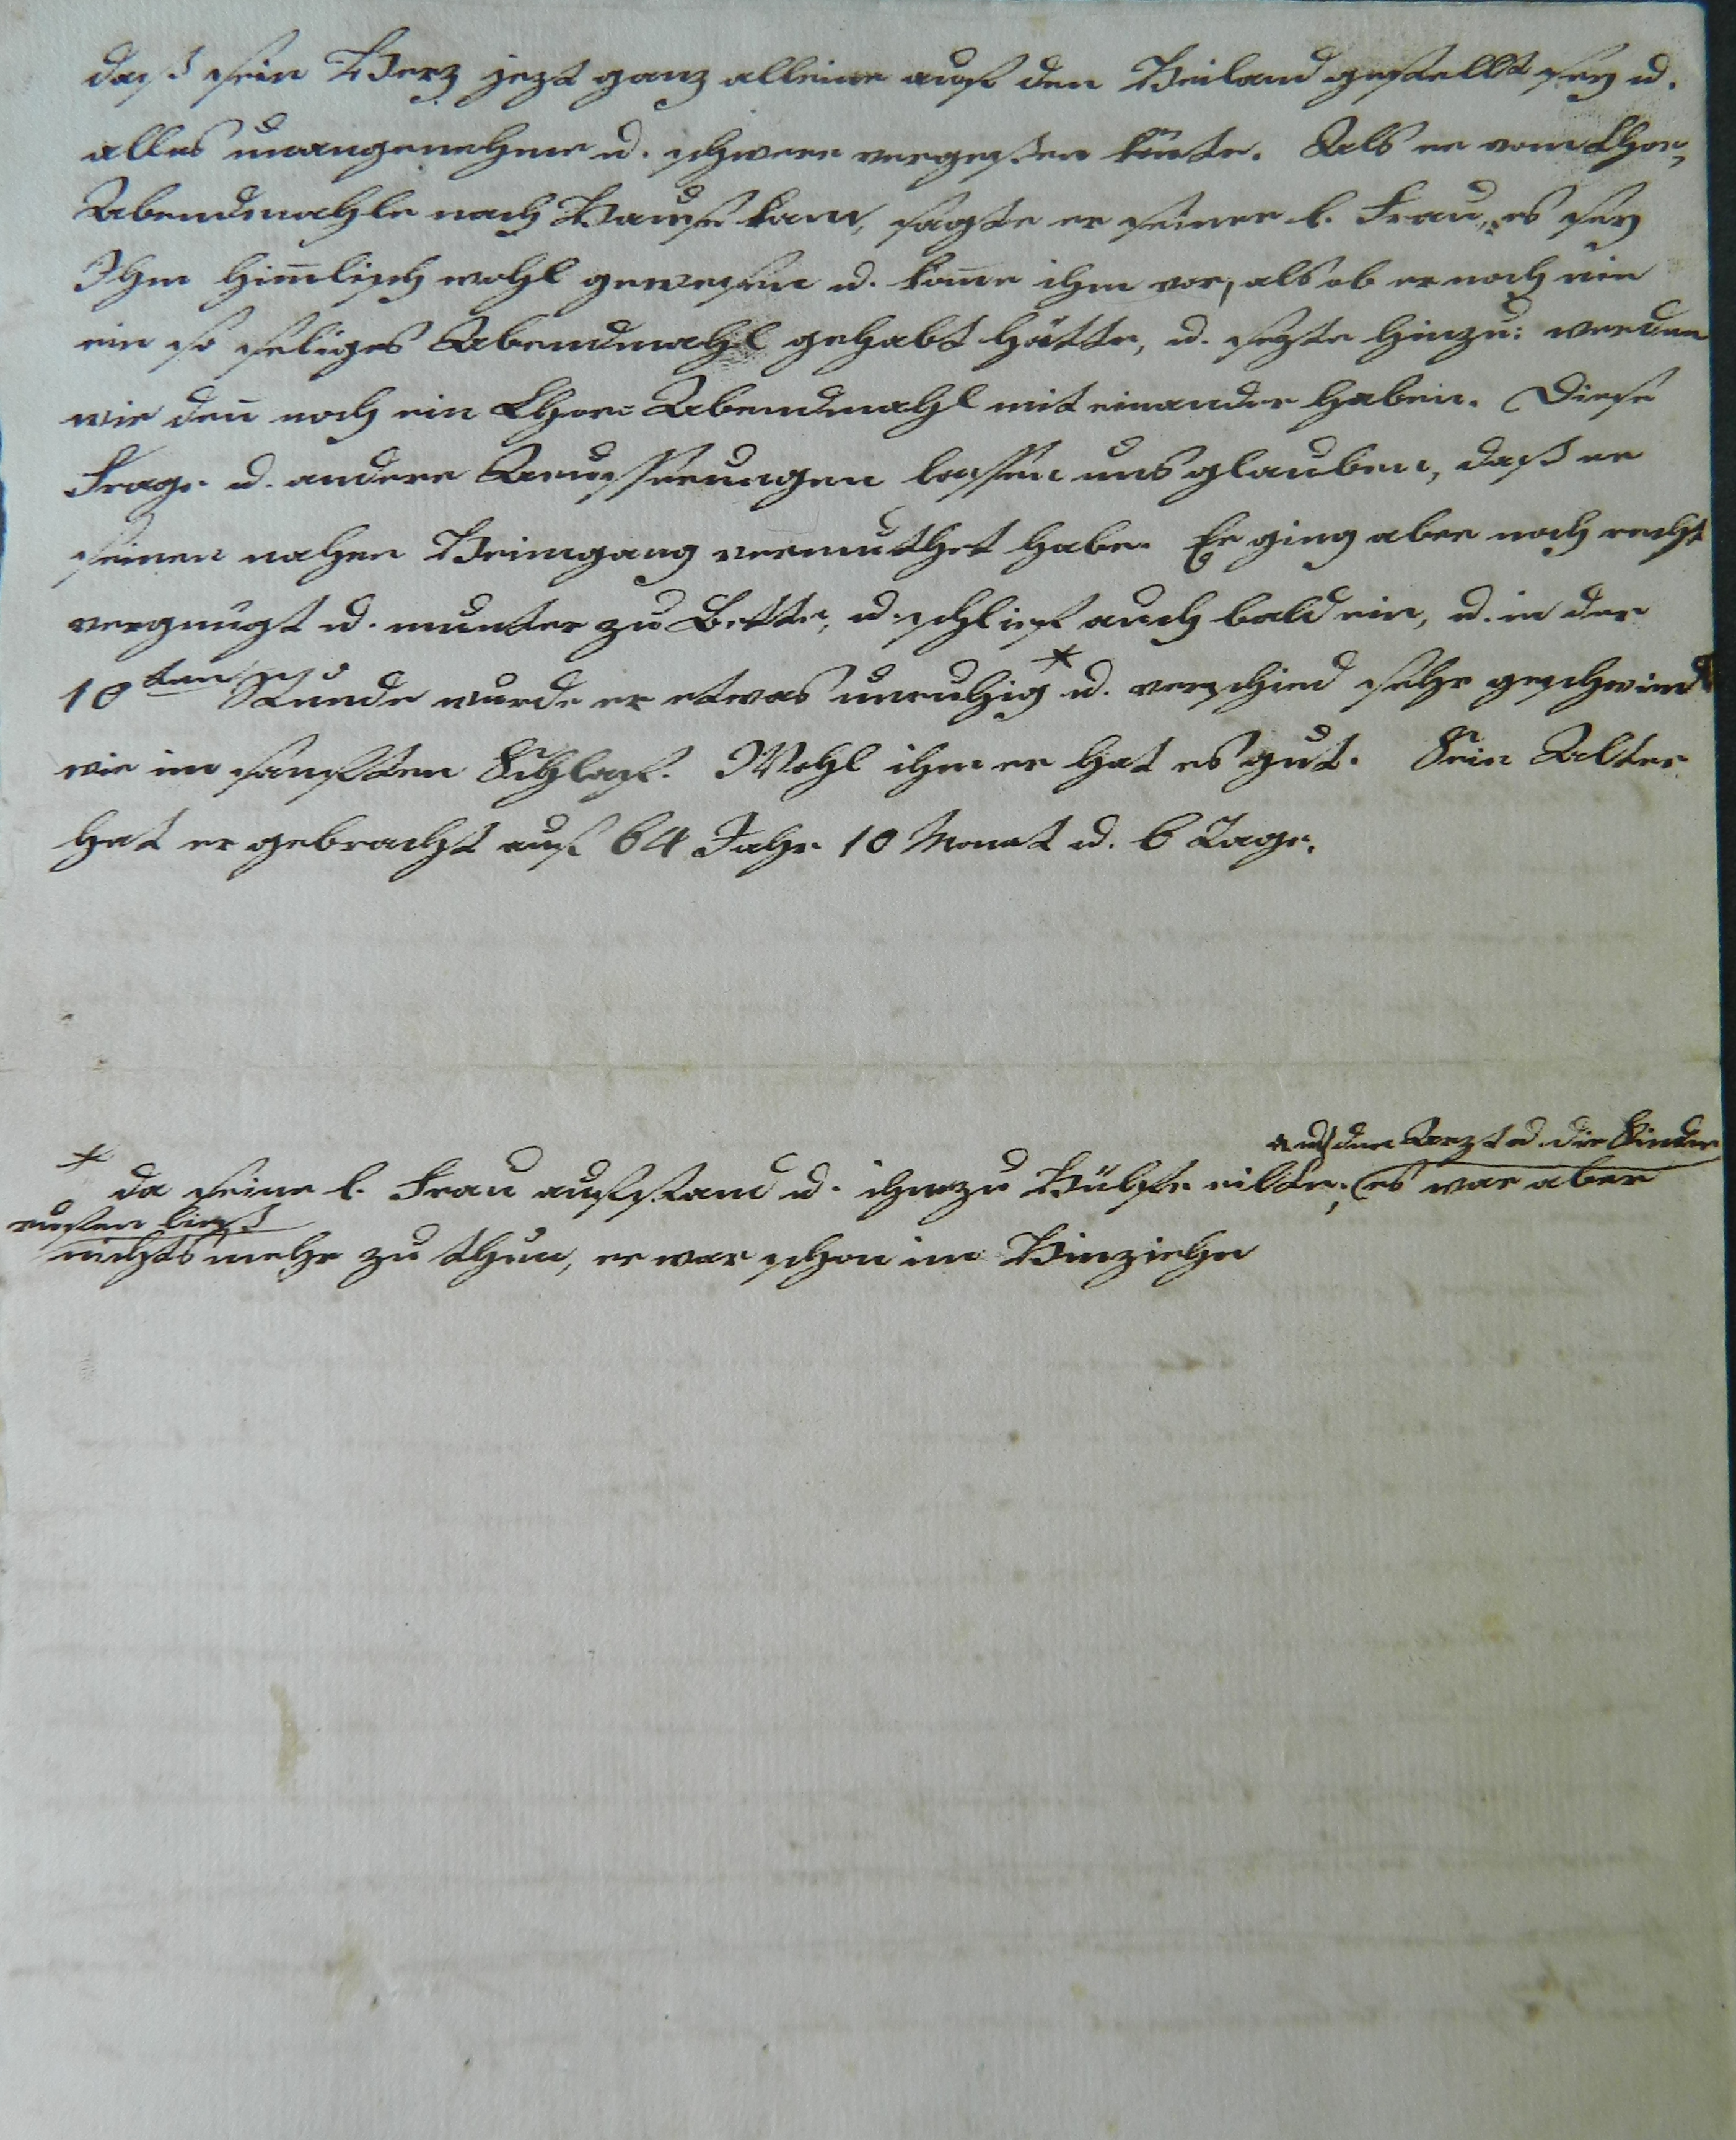 daß sein Herz jezt ganz alleine auf den Heiland gestellt sey u.
alles unangenehme u. schwere vergeßen könte. Als er vom Chor-
Abendmahle nach Hause kam, sagte er seiner l. Frau, es sey
Ihm him̄lisch wohl gewesen u. kom̄e ihm vor, als ob er noch nie
ein so seliges Abendmahl gehabt hätte, u. sezte hinzu: werden
wir den̄ noch ein Chor-Abendmahl mit einander haben. Diese
Frage u. andere Aeusserungen lassen uns glauben, daß er
seinen nahen Heimgang vermuthet habe. Er ging aber noch recht
vergnügt u. munter zu Bette, u. schlief auch bald ein, u. in der
10ten Stunde wurde er etwas unruhig * u. verschied sehr geschwind
wie im sanften Schlaf. Wohl ihm er hat es gut. Sein Alter
hat er gebracht auf 64 Jahr 10 Monat u. 6 Tage.
u. den Arzt u. die Kinder
* da seine l. Frau aufstand u. ihm zu Hülfe eilte, es war aber
rufen ließ
nichts mehr zu thun, er war schon im Hinziehn